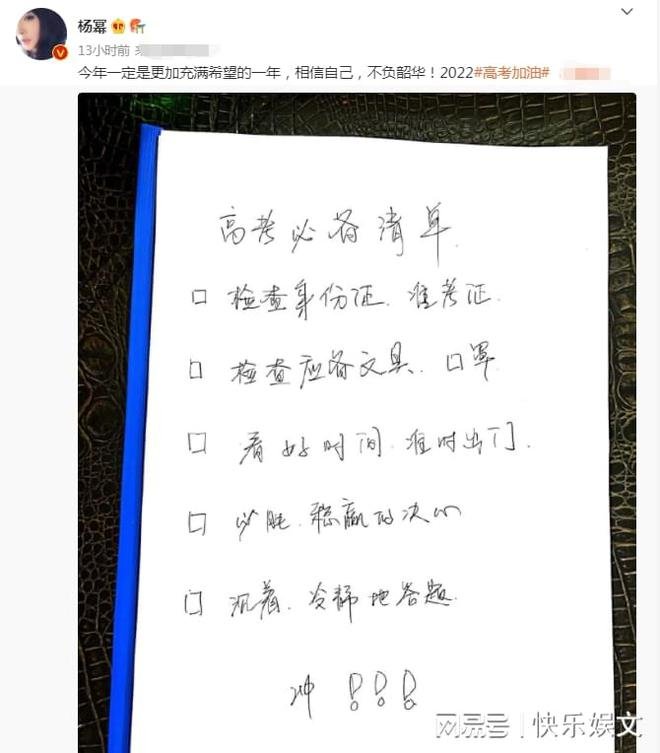 杨幂
13小时前 来
今年一定是更加充满希望的一年，相信自己，不负韶华！2022#高考加油#
高考必备清单.
□ 检查身份证、准考证.
□ 检查应备文具、口罩
□ 看好时间、准时出门.
□ 必胜、稳赢的决心
□ 沉着、冷静地答题.
冲！！！
网易号 | 快乐娱文